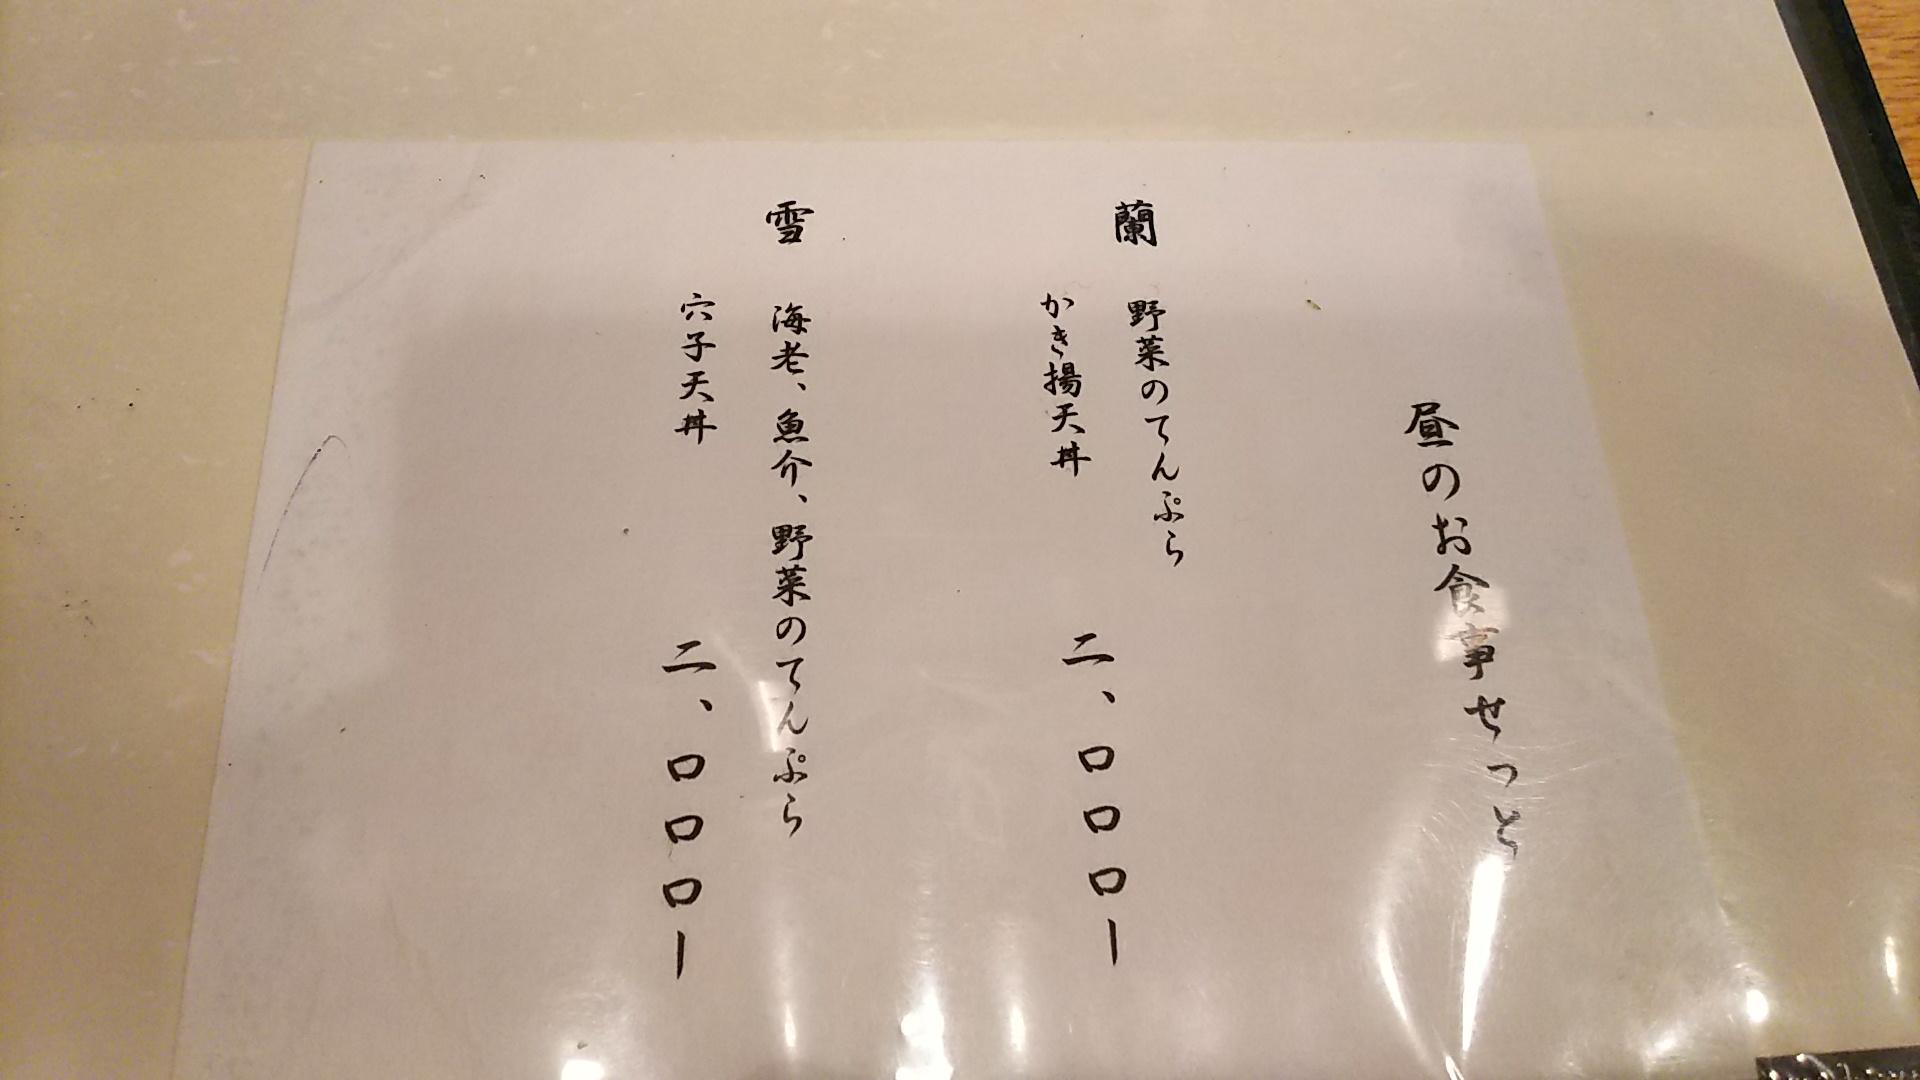 昼のお食事せっと
蘭
野菜のてんぷら
かき揚天丼
二、〇〇〇ー
雪
海老、魚介、野菜のてんぷら
穴子天丼
二、〇〇〇ー